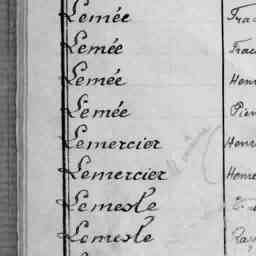 Lemée Frac
Lemée Frac
Lemée Henr
Lemée Pier
Lemercier Henr
Lemercier Henr
Lemesle
Lemesle Ray